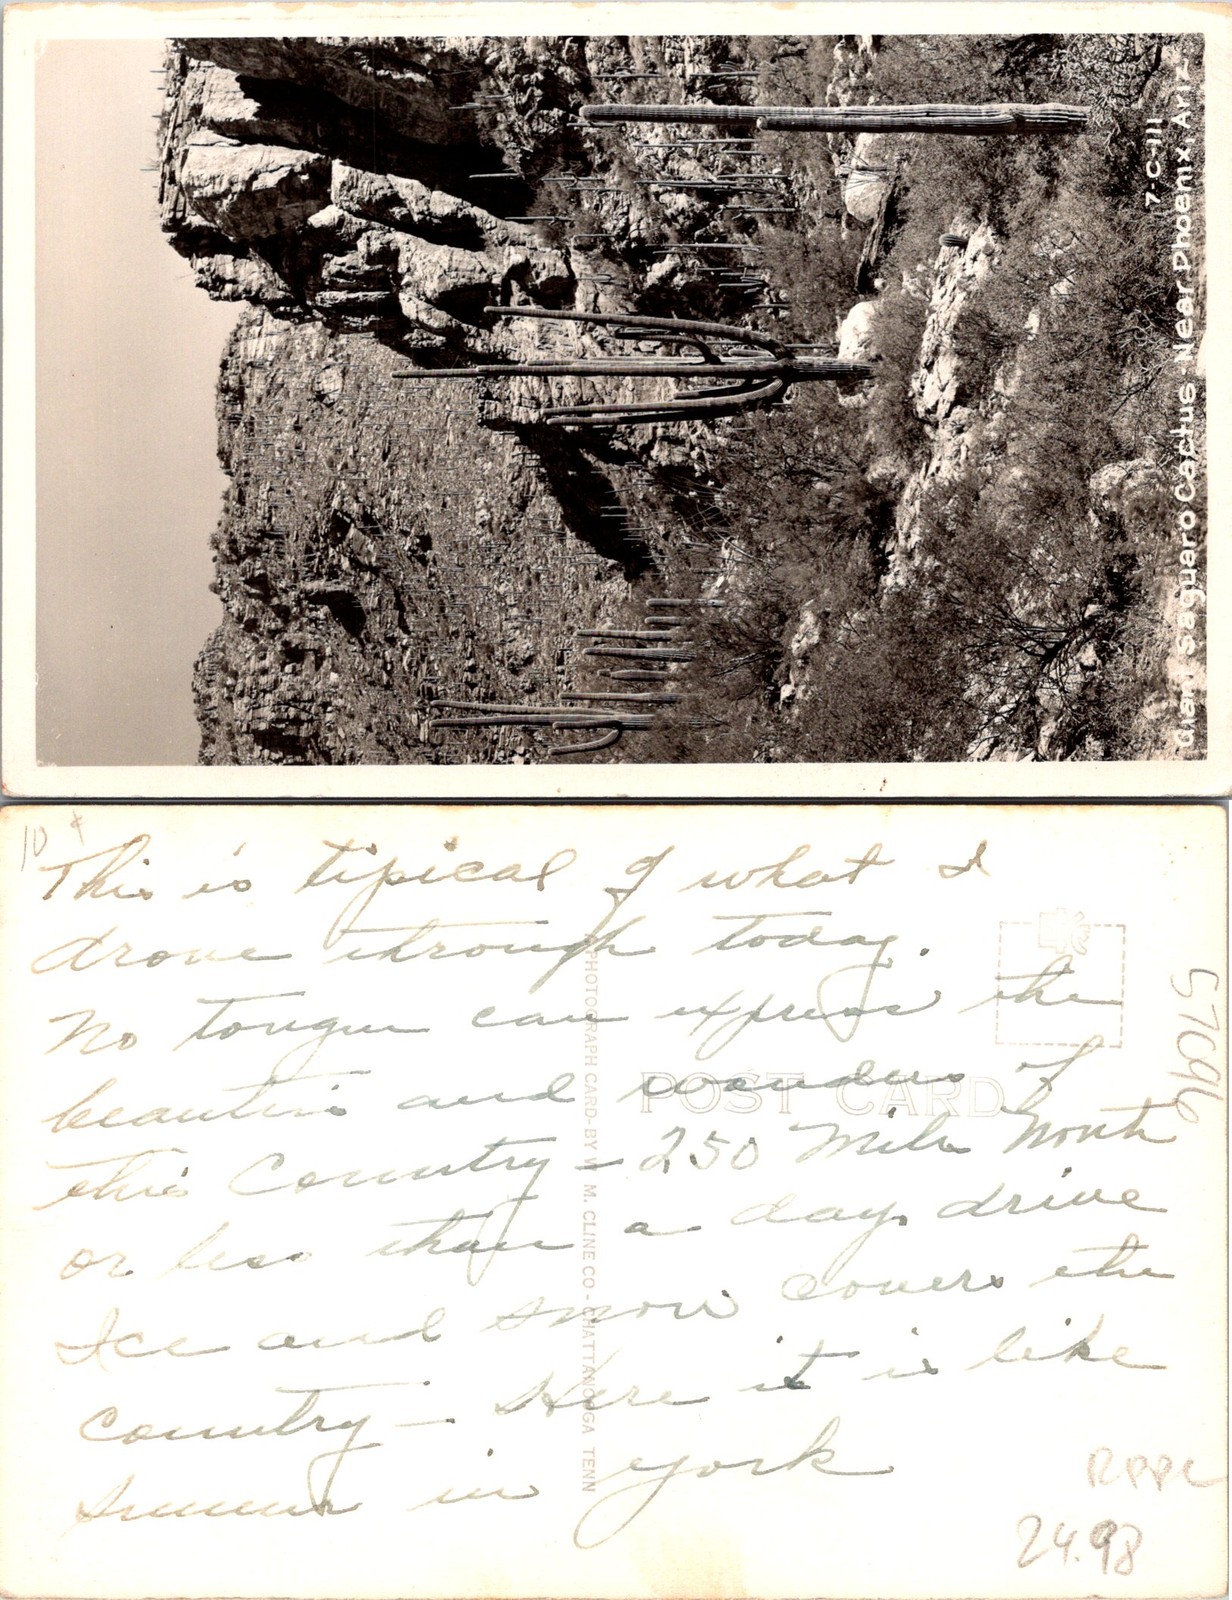 7-C-111
Giant Saguaro Cactus - Near Phoenix, Ariz
10¢
This is tipical of what I
drove through today.
No tongue can express the
beauties and wonders of
this Country - 250 Mile North
or less than a days drive
Ice and snow covers the
country - Here it is like
summer in York
PHOTOGRAPH CARD-BY W. M. CLINE CO-CHATTANOOGA TENN
POST CARD
57096
RPPC
24.98